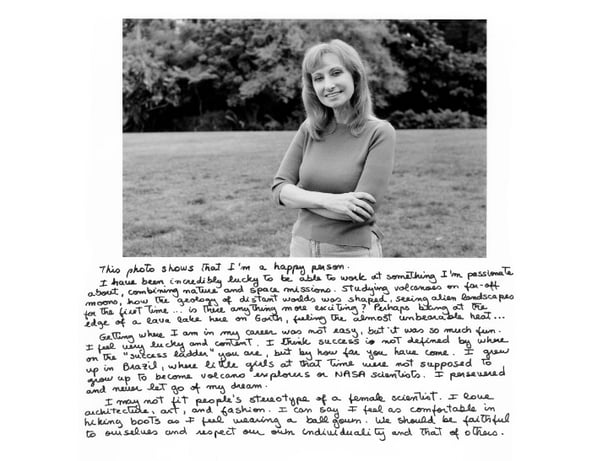 This photo shows that I'm a happy person.
I have been incredibly lucky to be able to work at something I'm passionate
about, combining nature and space missions. Studying volcanoes on far-off
moons, how the geology of distant worlds was shaped, seeing alien landscapes
for the first time... is there anything more exciting? Perhaps being at the
edge of a lava lake here on Earth, feeling the almost unbearable heat...
Getting where I am in my career was not easy, but it was so much fun.
I feel very lucky and content. I think success is not defined by where
on the "success ladder" you are, but by how far you have come. I grew
up in Brazil, where little girls at that time were not supposed to
grow up to become volcano explorers or NASA scientists. I persevered
and never let go of my dream.
I may not fit people's stereotype of a female scientist. I love
architecture, art, and fashion. I can say I feel as comfortable in
hiking boots as I feel wearing a ballgown. We should be faithful
to ourselves and respect our own individuality and that of others.